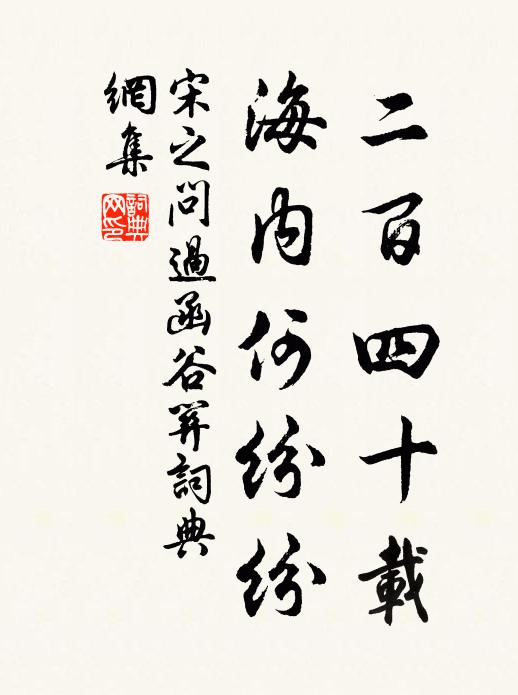 二百四十載
海內何紛紛
宋之問過函谷関詞典
網集
詞典
网印